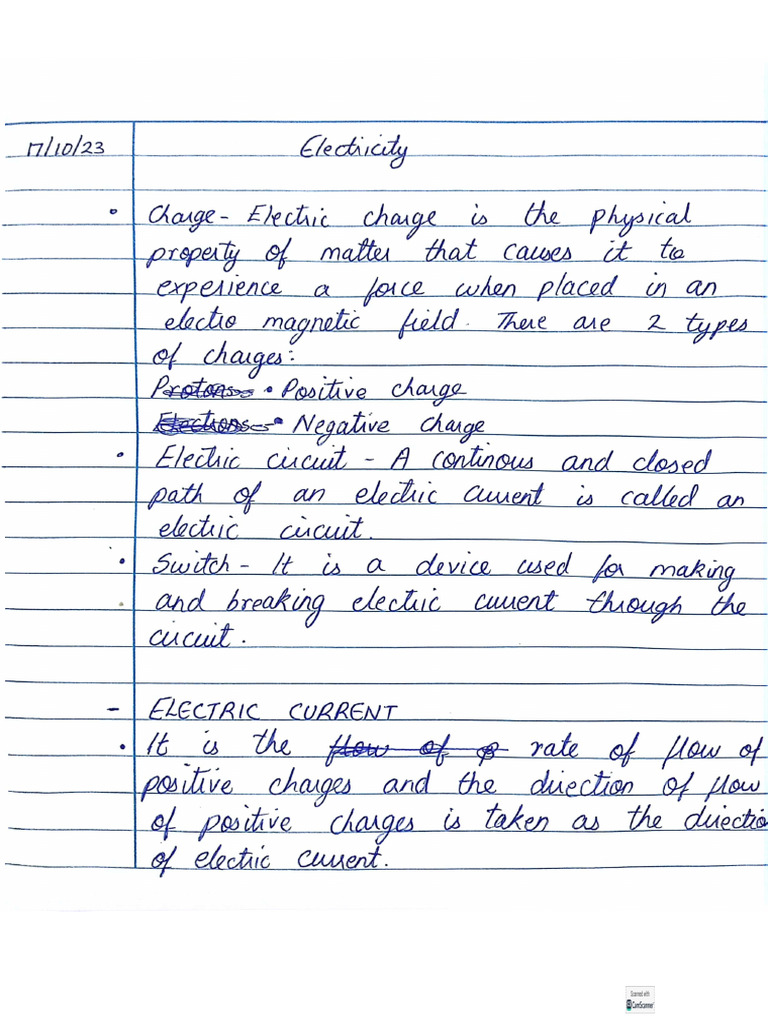 17/10/23 Electricity
• Charge - Electric charge is the physical
property of matter that causes it to
experience a force when placed in an
electro magnetic field. There are 2 types
of charges:
Protons - • Positive charge
Electrons - • Negative charge
• Electric circuit - A continous and closed
path of an electric current is called an
electric circuit.
• Switch - It is a device used for making
and breaking electric current through the
circuit.
- ELECTRIC CURRENT
• It is the flow of p rate of flow of
positive charges and the direction of flow
of positive charges is taken as the directio
of electric current.
Scanned with
CamScanner